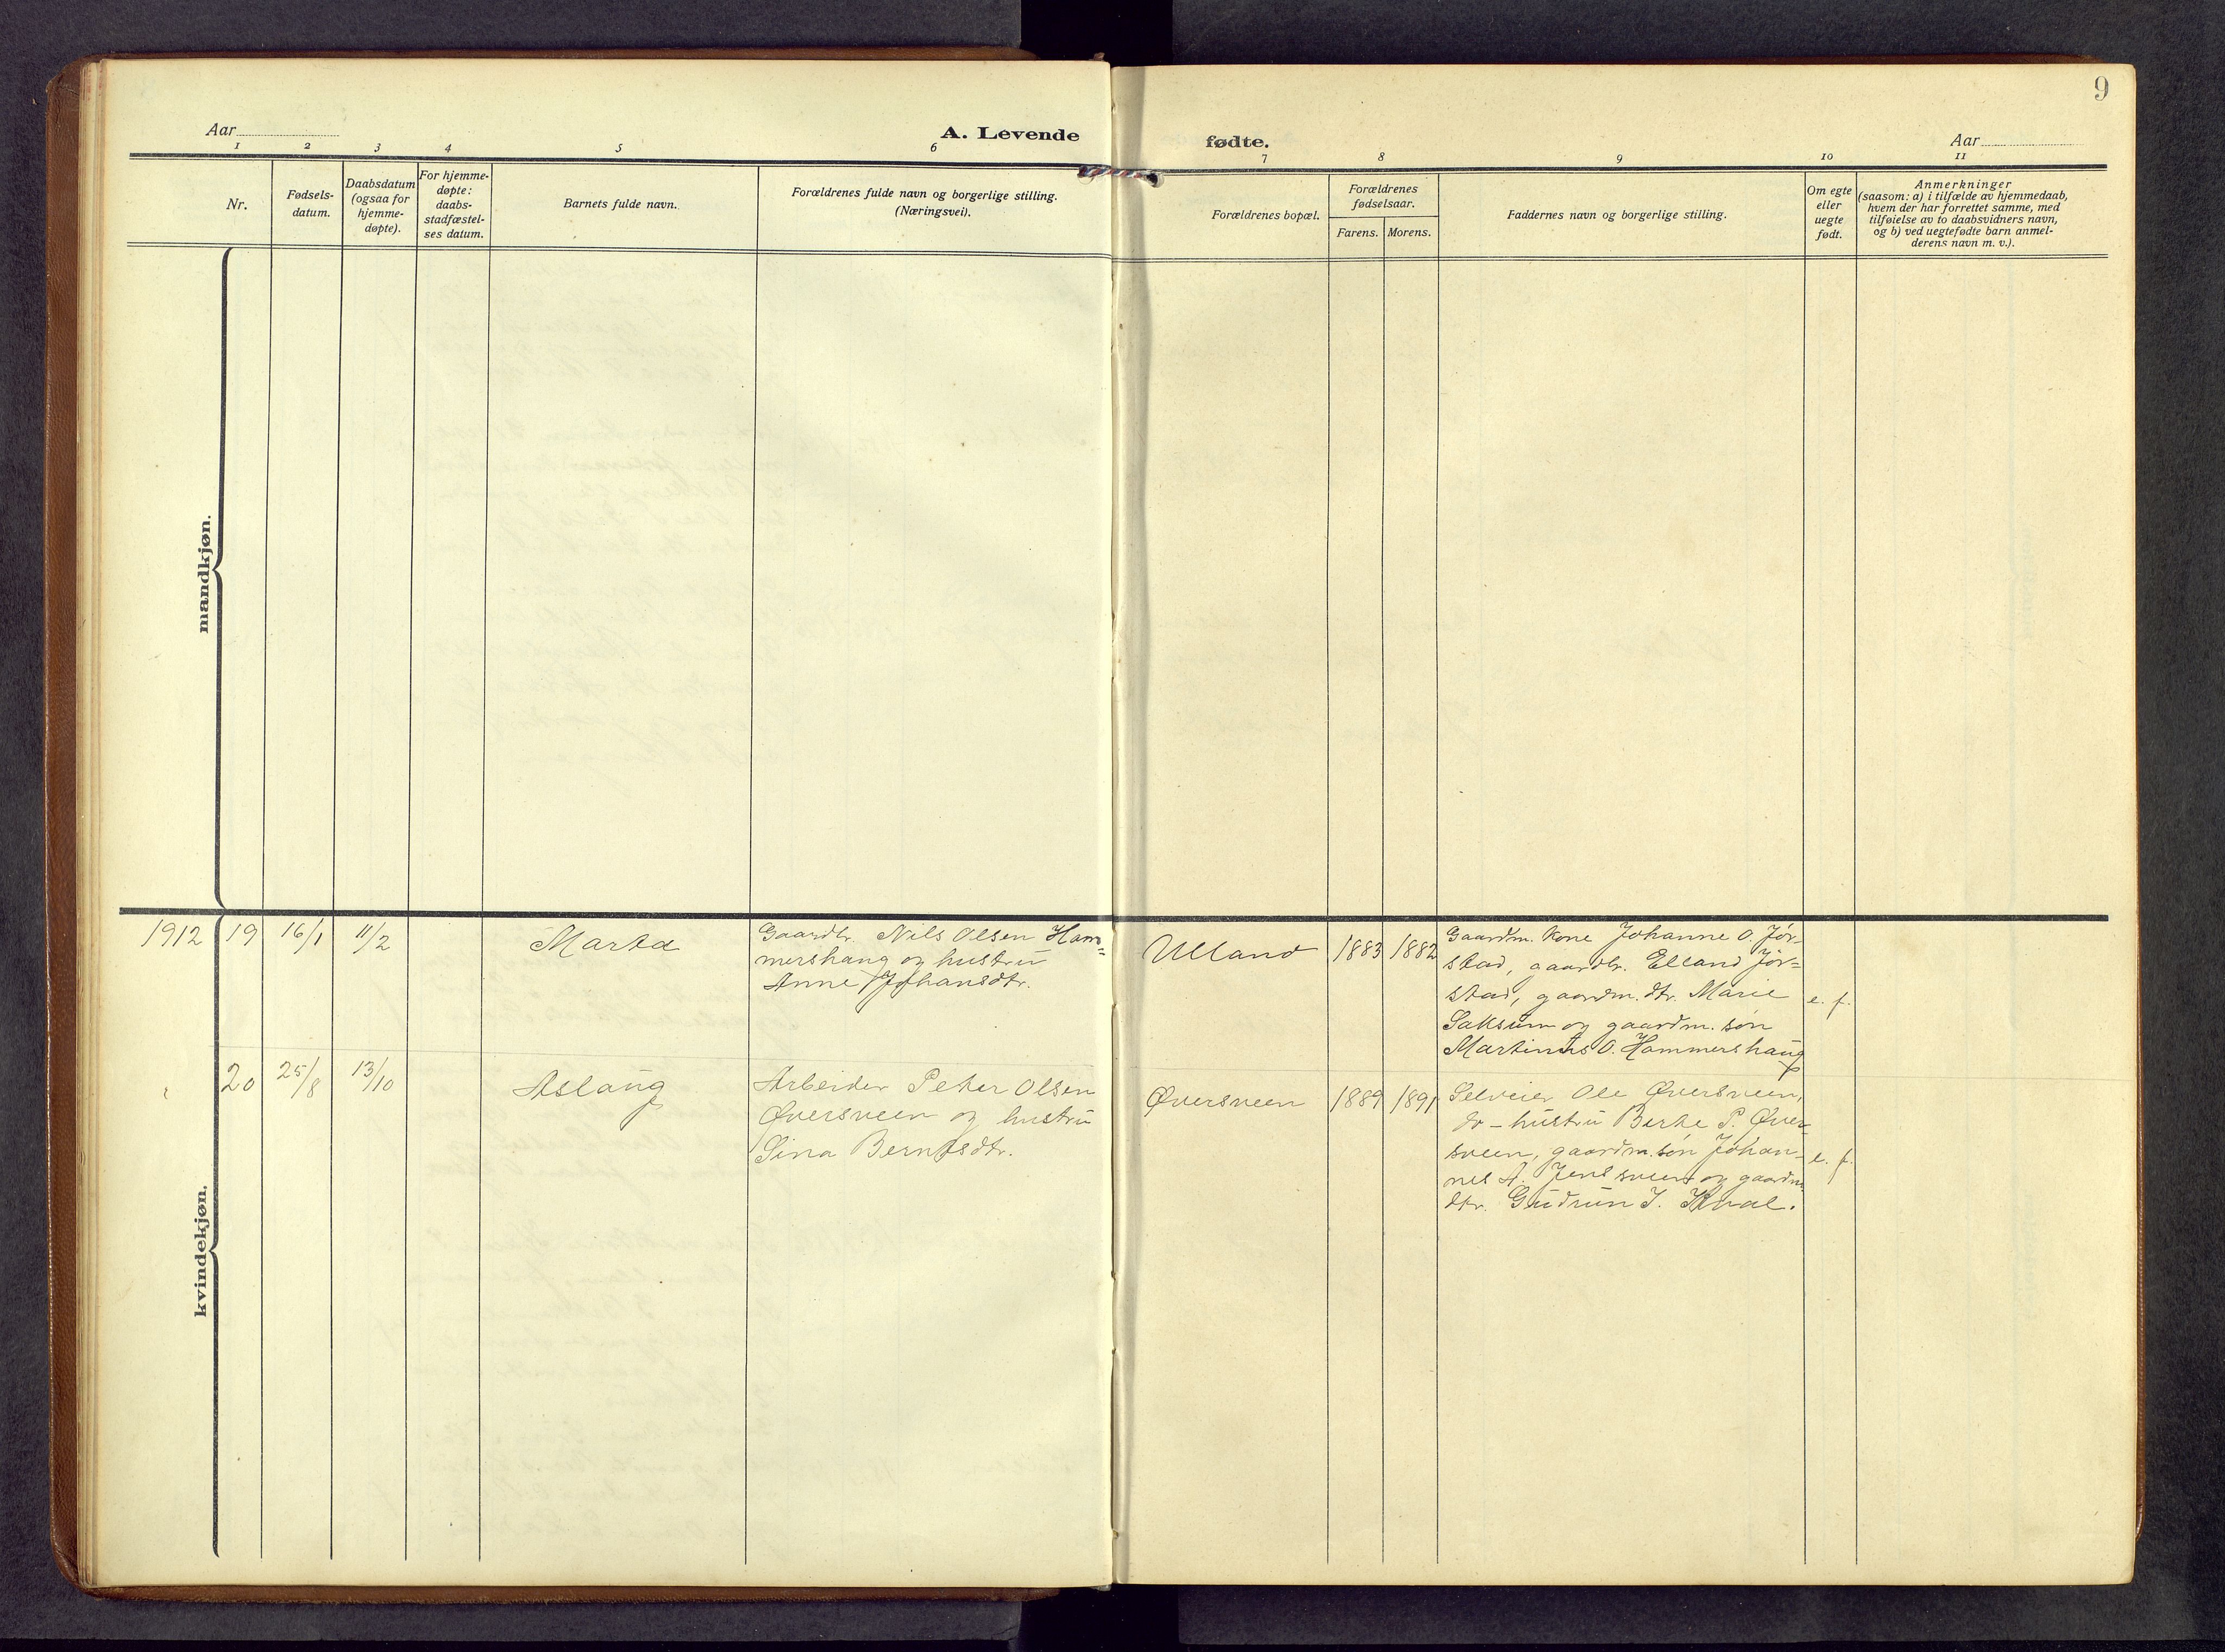 9
Aar
A. Levende
fødte.
Aar
1 2 3 4 5 6 7 8 9 10 11
Nr.
Fødsels-
datum.
Daabsdatum
(ogsaa for
hjemme-
døpte).
For hjemme-
døpte:
daabs-
stadfæstel-
ses datum.
Barnets fulde navn.
Forældrenes fulde navn og borgerlige stilling.
(Næringsvei).
Forældrenes bopæl.
Forældrenes
fødselsaar.
Farens. Morens.
Faddernes navn og borgerlige stilling.
Om egte
eller
uegte
født.
Anmerkninger
(saasom: a) i tilfælde av hjemmedaab,
hvem der har forrettet samme, med
tilføielse av to daabsvidners navn,
og b) ved uegtefødte barn anmel-
derens navn m. v.).
mandkjøn.
1912 19 16/1 11/2
Marta
Gaardbr. Nils Olsen Ham=
mershaug og hustru
Anne Johansdtr.
Ulland
1883 1882
Gaardm. kone Johanne O. Jør-
stad, gaardbr. Elland Jør=
stad, gaardm. dtr. Marie
Saksum og gaardm. søn
Martinus O. Hammershaug
e. f.
20 25/8 13/10
Aslaug
Arbeider Peter Olsen
Øversveen og hustru
Sina Berntsdtr.
Øversveen
1889 1891
Selveier Ole Øversveen,
do - hustru Berte P. Øver-
sveen, gaardm. søn Johan-
nes A. Jenssveen og gaardm.
dtr. Gudrun J. Kval.
e. f.
kvindekjøn.